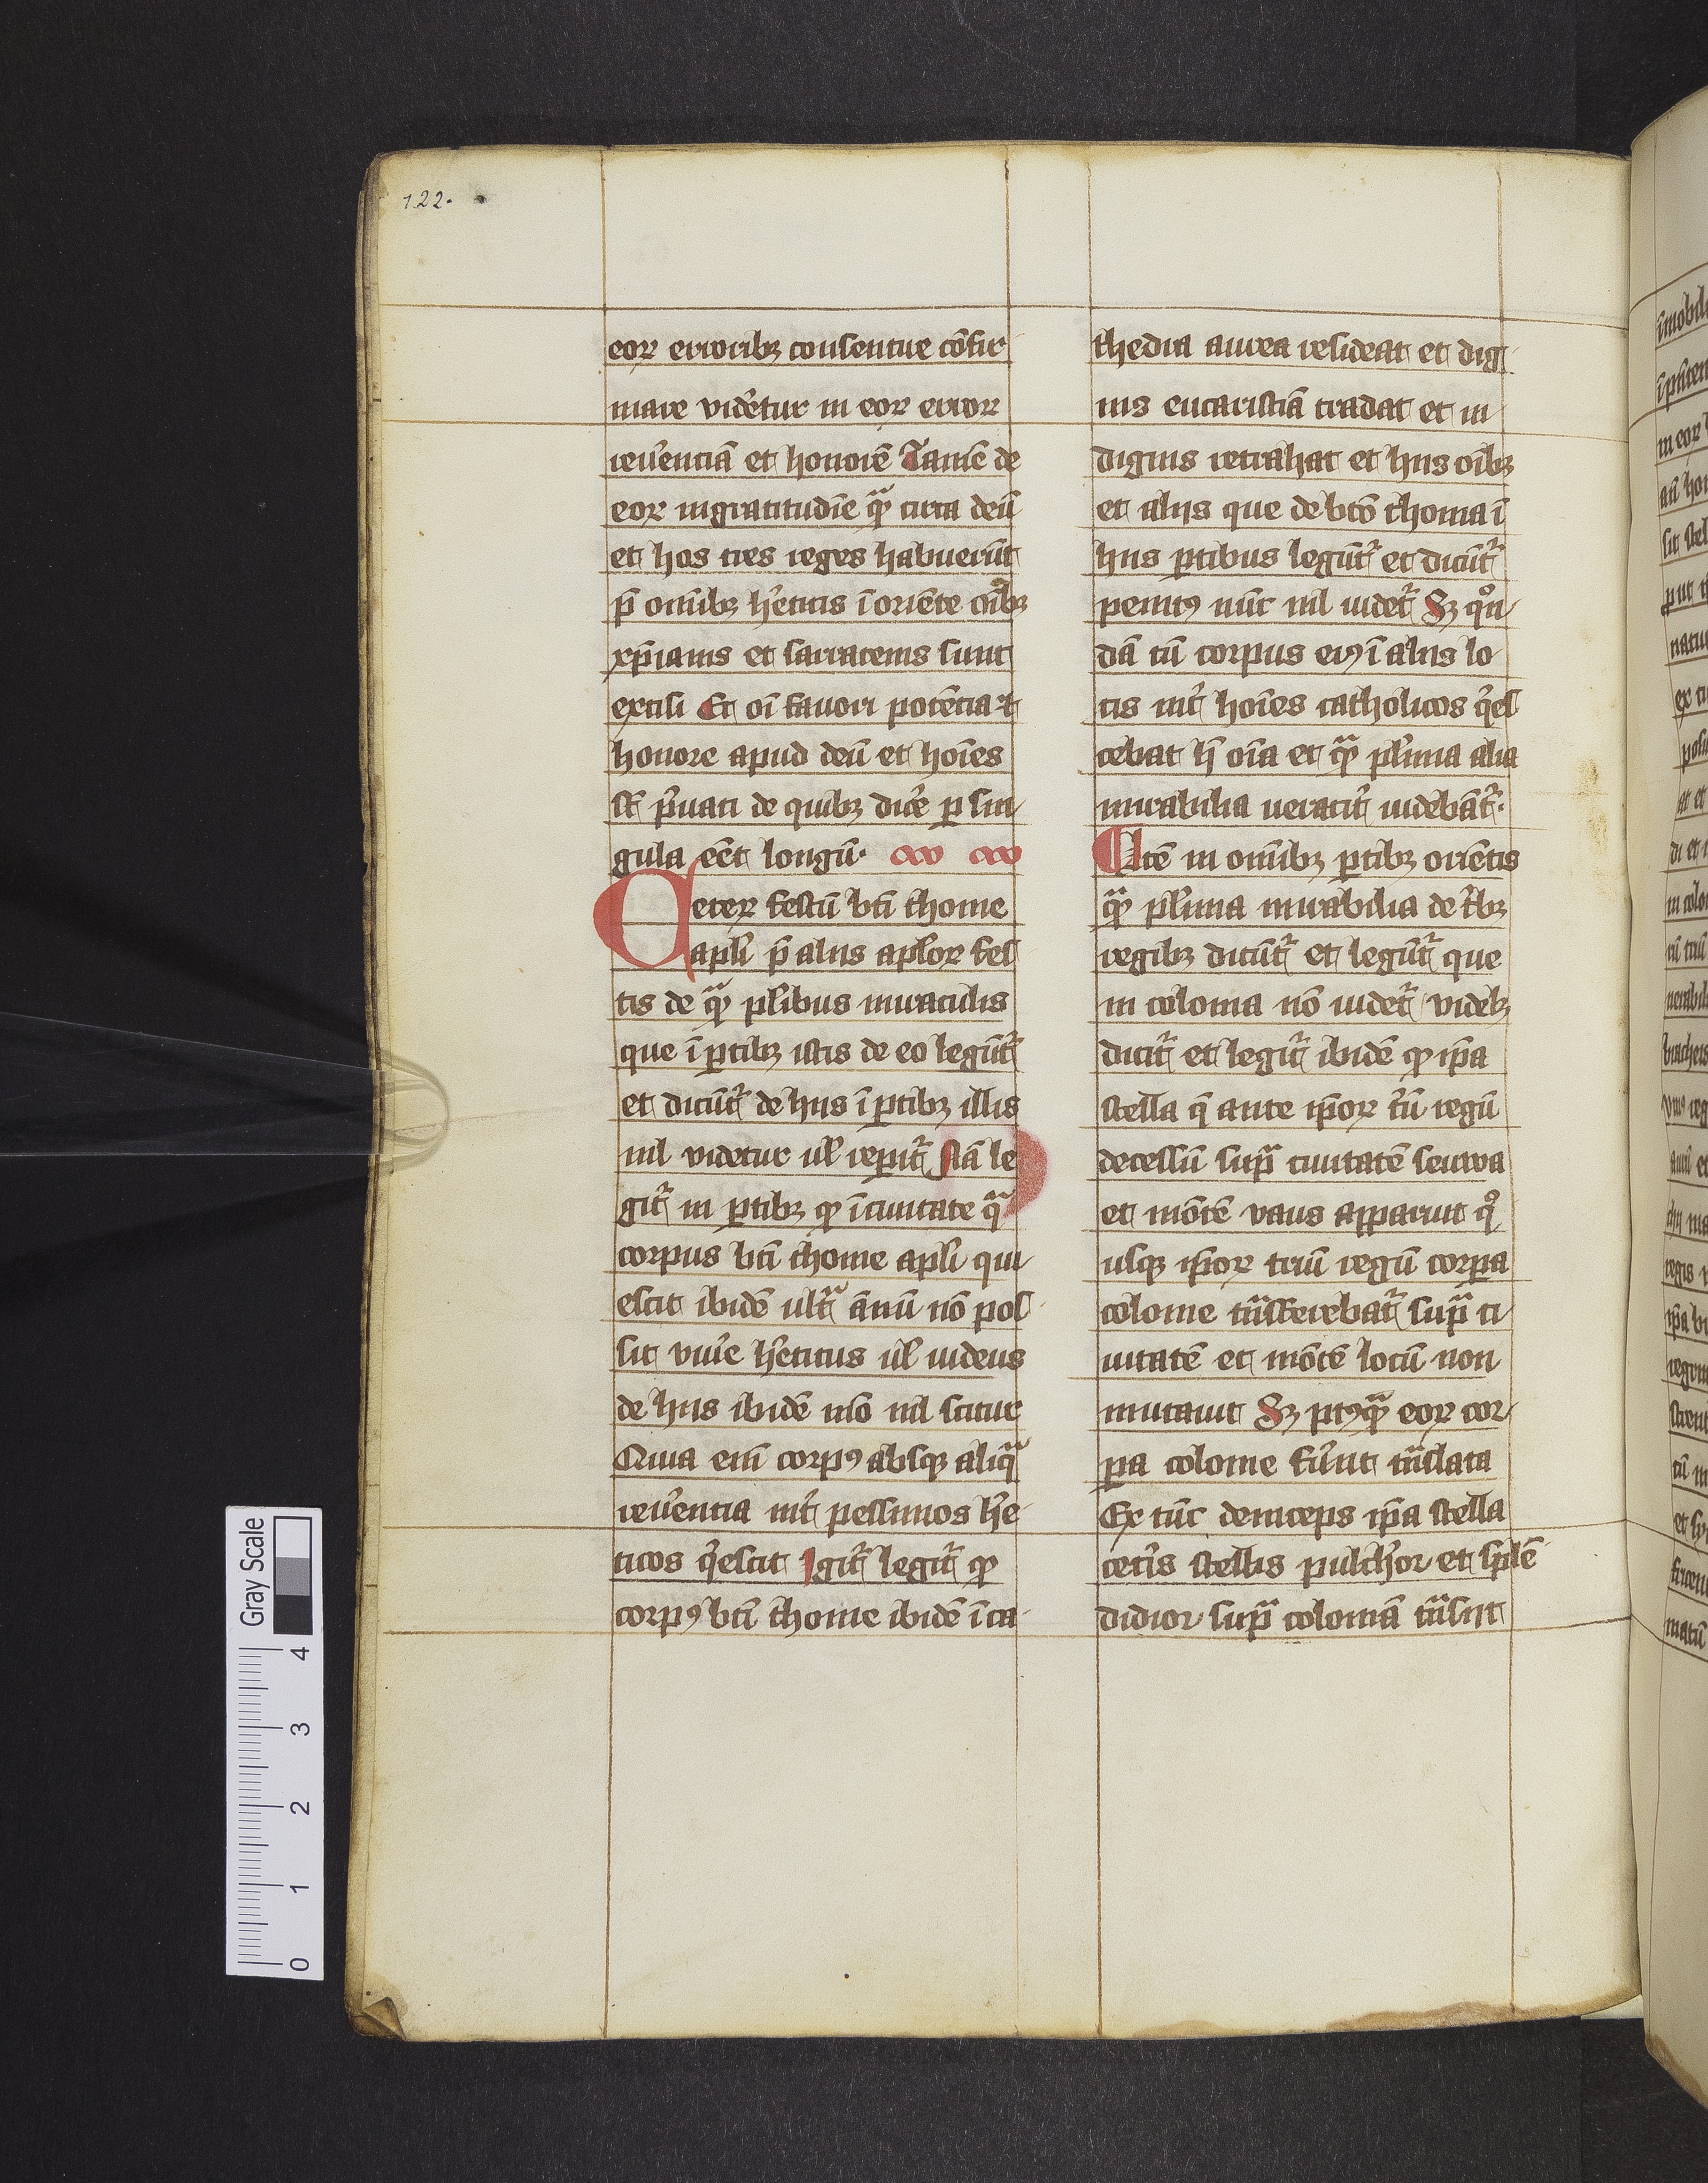 122.
eoꝝ erroribꝫ consentire cōfir
mare vidētur in eoꝝ erroꝝ
reu̾entiā et honorē Tamē de
eoꝝ ingratitudīe qͣꝫ circa deū
et hos tres reges habuerūt
p̄ omībꝫ h̾eticis ī oriēte oībꝫ
xp̄ianis et sarracenis sunt
exosi Et oī fauori potētia et
honore apud deū et hoīes
st̄ p̾uati de quibꝫ dic̾e ꝑ sin
gula eēt longū·
Ceteꝝ festū bt̄i thome
apl̄i p̄ aliis apl̄oꝝ fes
tis de qͣꝫ pl̾ibus miraculis
que ī ꝑtibꝫ istis de eo legūt᷑
et dicūt᷑ de hiis ī ꝑtibꝫ illis
nil videtur ul̄ reꝑit᷑ Nā le
git᷑ in ꝑtibꝫ ꝙ ī ciuitate qͣ
corpus bt̄i thome apl̄i qui
escit ibidē ultͣ ānū nō pos
sit viu̾e h̾eticus ul̄ iudeus
de hiis ibidē mō nil scitur
Quia em̄ corpꝰ absqꝫ aliqͣ
reu̾entia int᷑ pessimos h̾e
ticos q̾escit Igit᷑ legit᷑ ꝙ
corpꝰ bt̄i thome ibidē ī ca
thedra aurea resideat et dig
nis eucaristiā tradat et in
dignis retrahat et hiis oībꝫ
et aliis que de bt̄o thoma ī
hiis ꝑtibus legūt᷑ et dicūt᷑
penitꝰ nūc nil uidet᷑ Sꝫ qͦn
dā cū corpus eiꝰ ī aliis lo
cis int᷑ hoīes catholicos q̾es
cebat h̄ oīa et qͣꝫ pl̾ima alia
mirabilia ueracit᷑ uidebāt᷑·
Itē in omībꝫ ꝑtibꝫ oriētis
qͣꝫ pl̾ima mirabilia de t̾bꝫ
regibꝫ dicūt᷑ et legūt᷑ que
in colonia nō uidet᷑ videlꝫ
dicit᷑ et legit᷑ ibidē ꝙ ip̄a
stella q̄ ante ip̄oꝝ t̾ū regū
decessū supͣ ciuitatē seuwa
et mōtē vaus apparuit qͦ
usqꝫ ip̄oꝝ triū regū corꝑa
colonie tͣnsferebat᷑ supͣ ci
uitatē et mōtē locū non
mutauit Sꝫ pꝰqͣꝫ eoꝝ cor
ꝑa colonie fu̾nt tͣnslata
Ex tūc deinceps ip̄a stella
cet̾is stellis pulch̾or et splē
didior supͣ coloniā tͣnsiit
Gray Scale
0 1 2 3 4